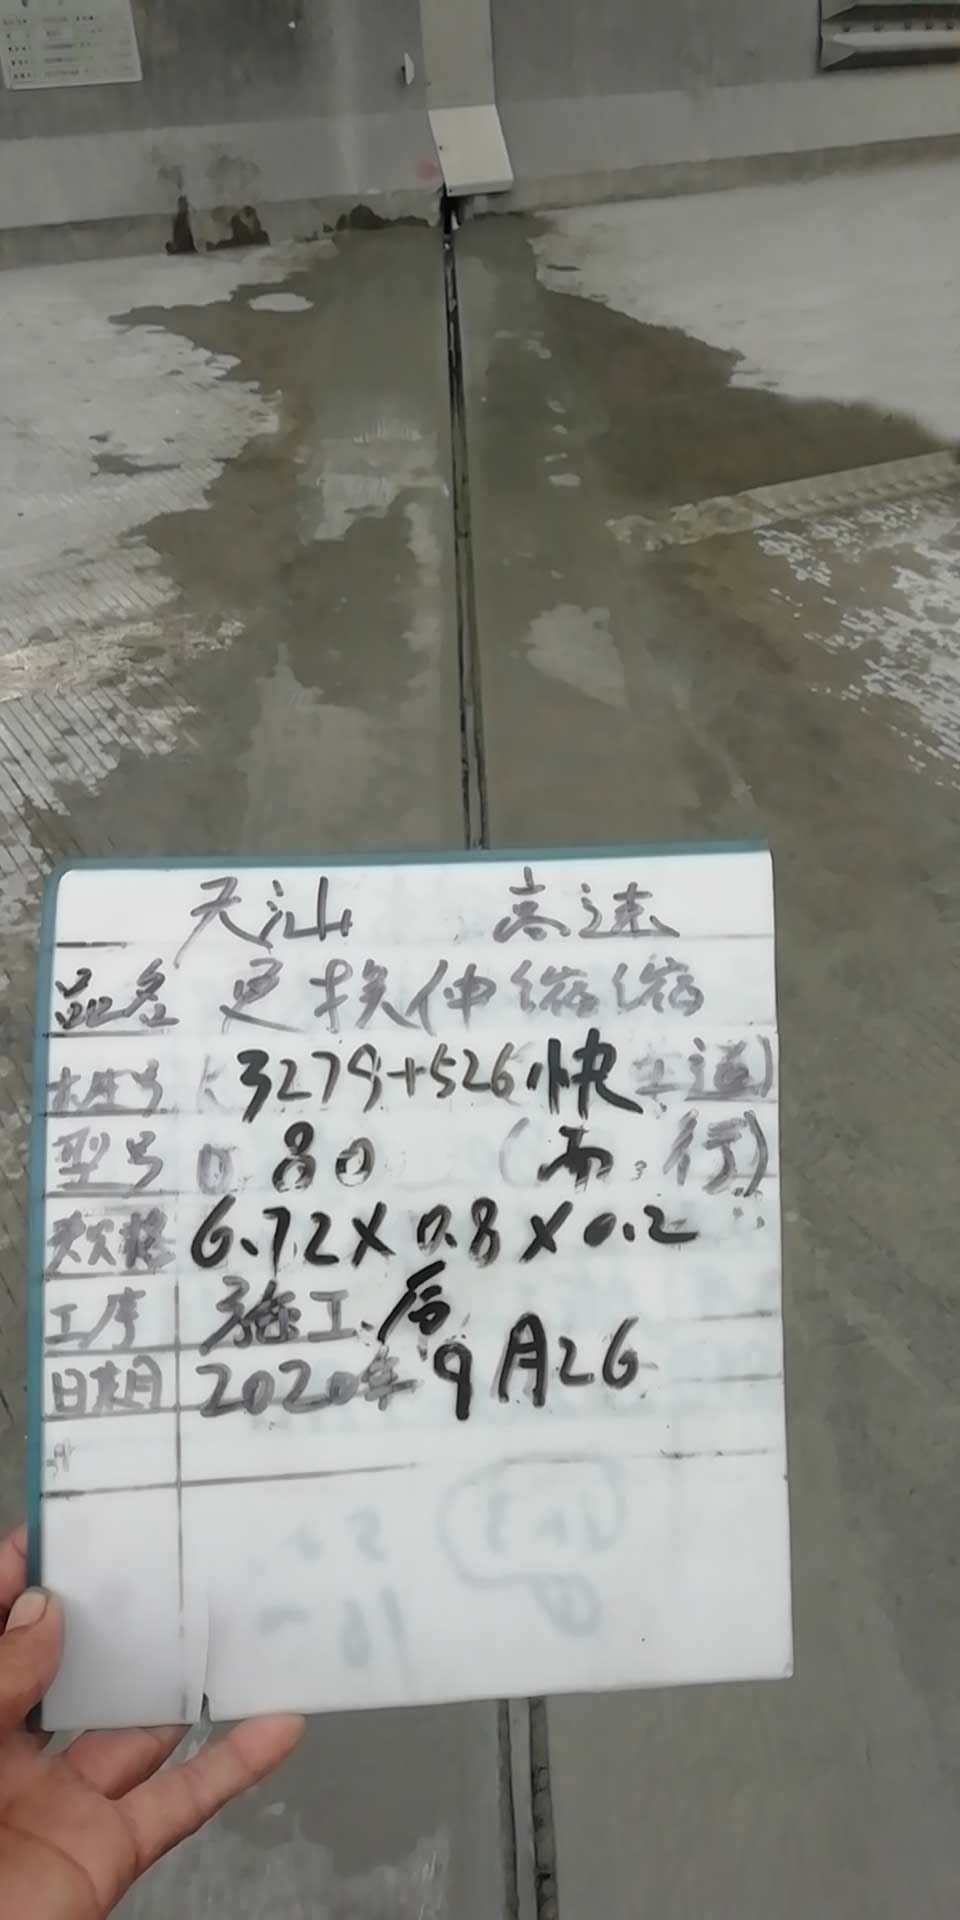 天汕 高速
品名 更换伸缩缩
桩号 K3279+526(快车道)
型号 D 80 (南.行)
规格 6.72×0.8×0.2
工序 施工后
日期 2020年9月26